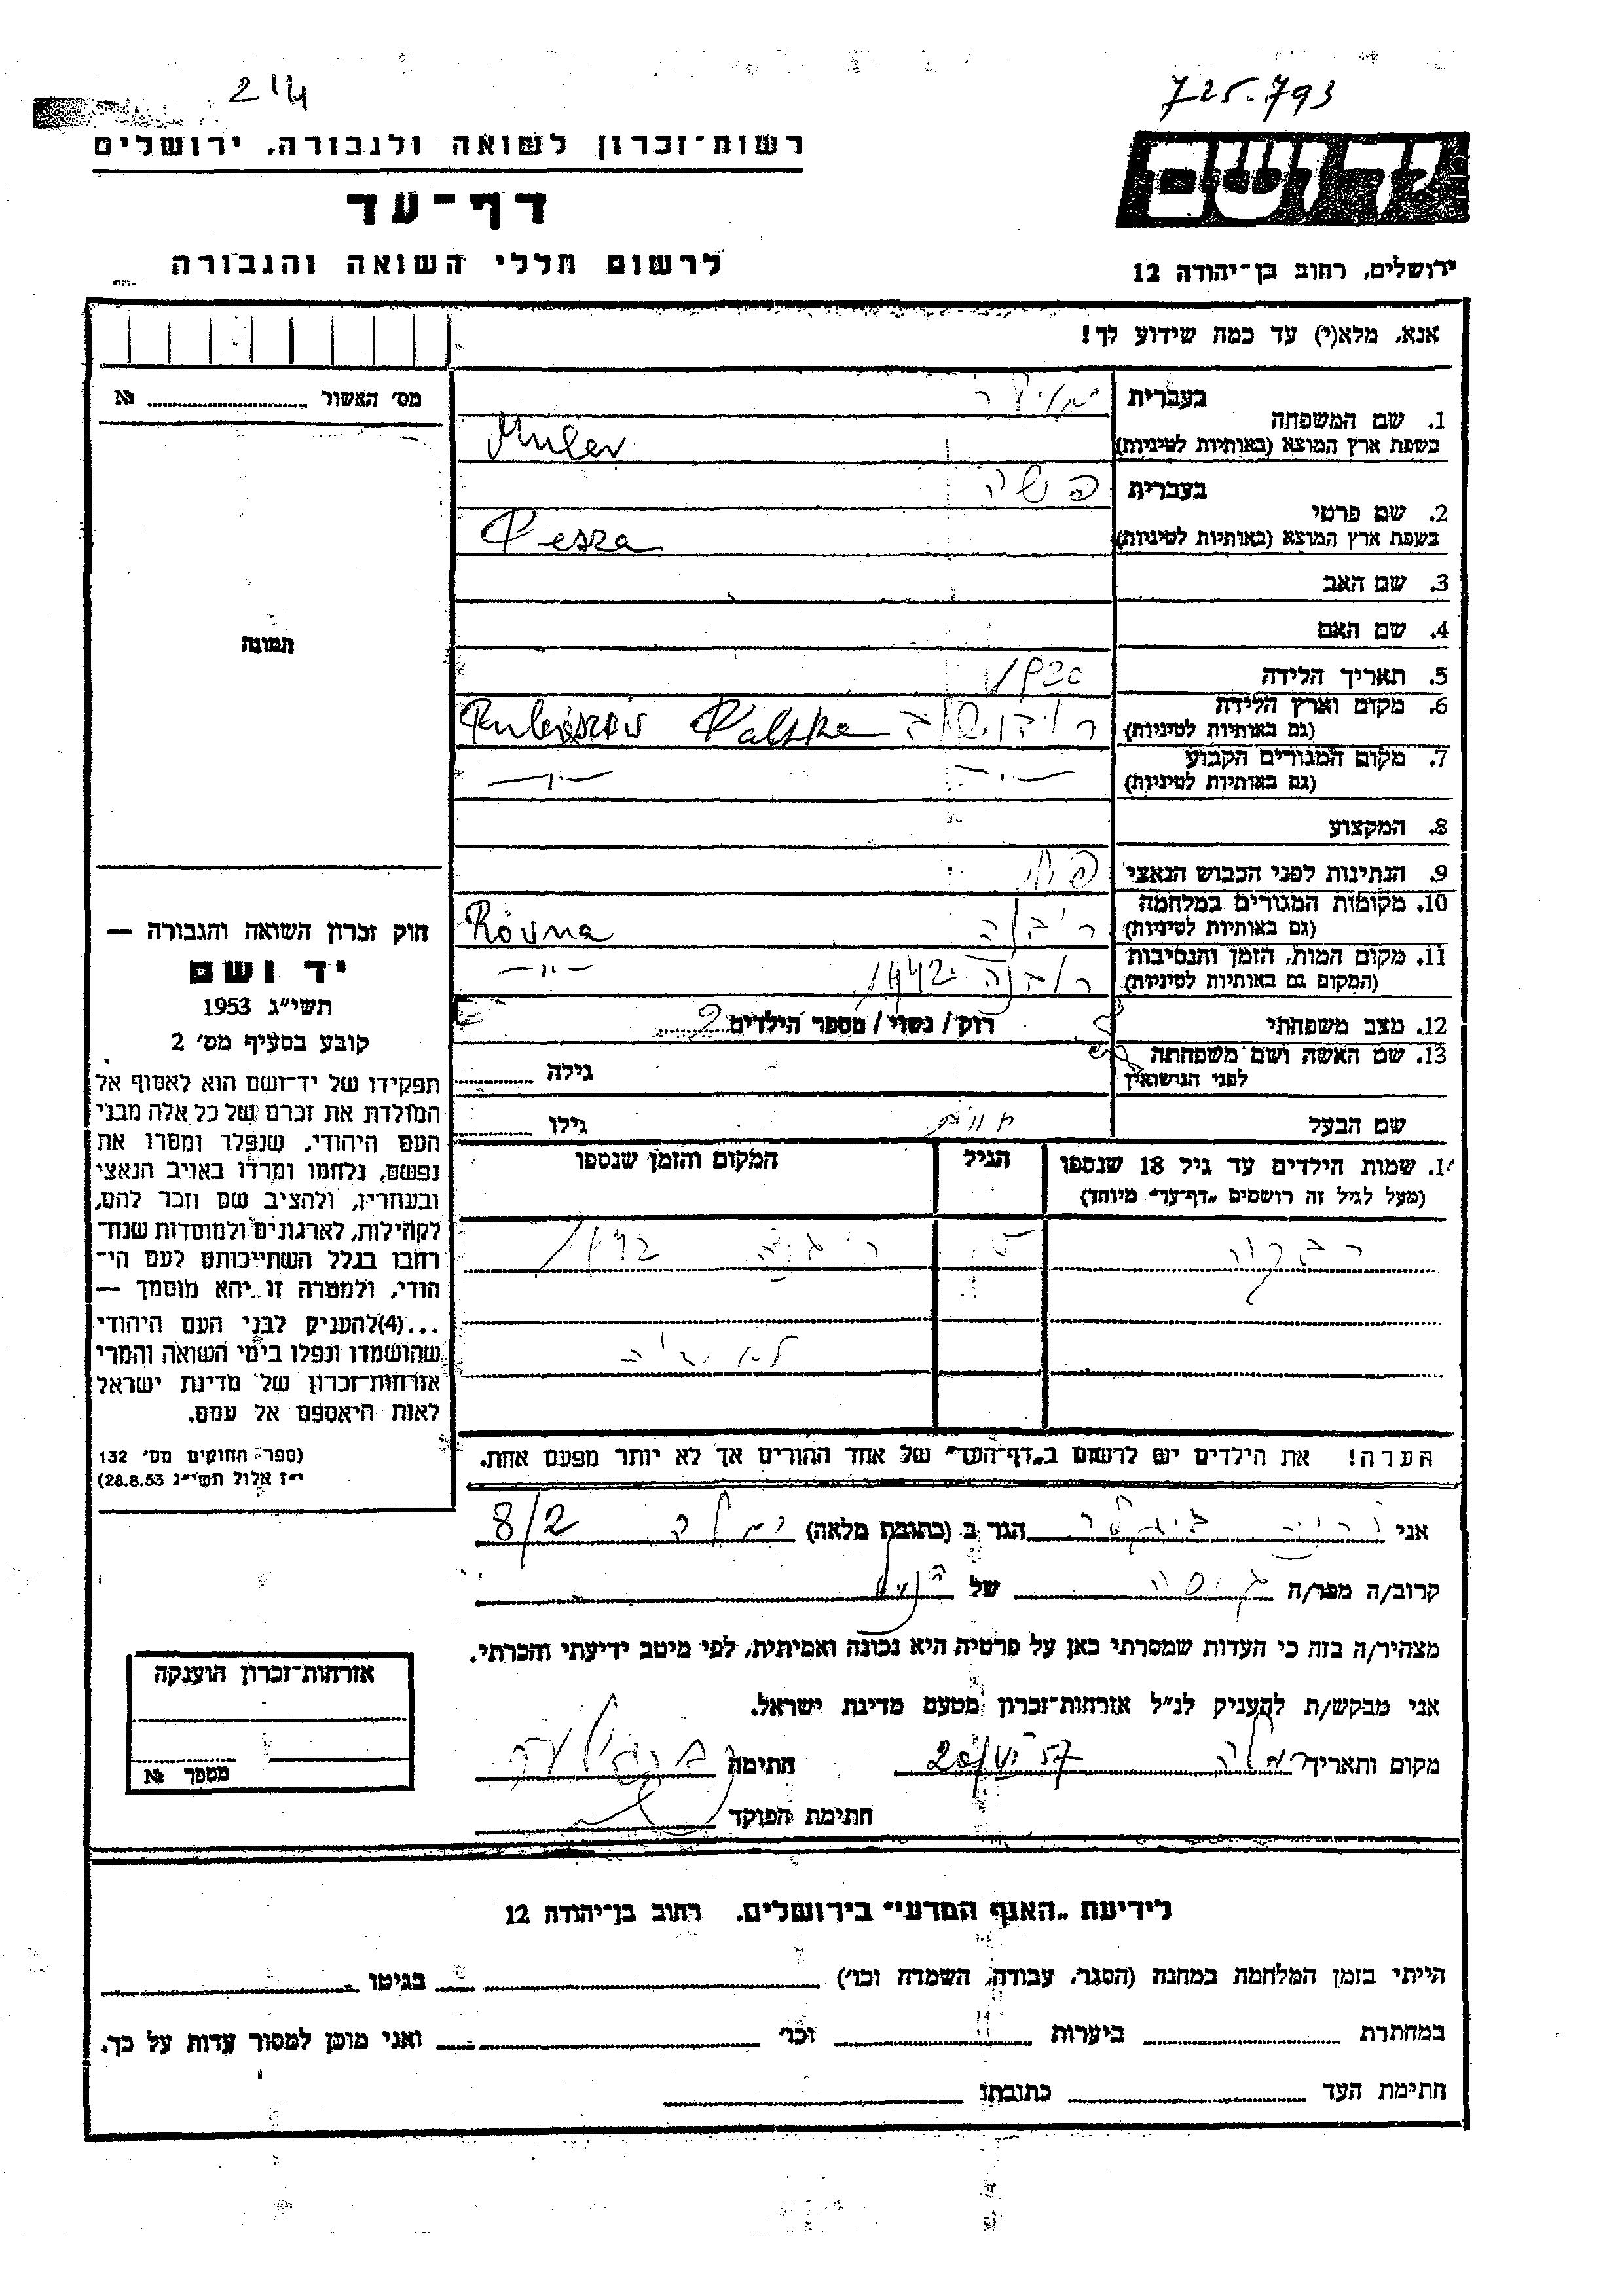 214
725.793
רשות־זכרון לשואה ולגבורה, ירושלים
יד ושם
דף־עד
לרשום חללי השואה והגבורה
ירושלים, רחוב בן־יהודה 12
אנא, מלא(י) עד כמה שידוע לך!
מס׳ האשור № 
1. שם המשפחה בעברית
בשפת ארץ המוצא (באותיות לטיניות) Muler
2. שם פרטי בעברית פשה
בשפת ארץ המוצא (באותיות לטיניות) Pesza
3. שם האב
4. שם האם
תמונה
5. תאריך הלידה 1920
6. מקום וארץ הלידה
(גם באותיות לטיניות) Polska
7. מקום המגורים הקבוע
(גם באותיות לטיניות) —״— —״—
8. המקצוע
9. הנתינות לפני הכבוש הנאצי
10. מקומות המגורים במלחמה
(גם באותיות לטיניות) רובנה Równa
11. מקום המות, הזמן והנסיבות
(המקום גם באותיות לטיניות) רובנה 1942 —״—
12. מצב משפחתי רוק/ נשוי/ מספר הילדים 2
13. שם האשה ושם משפחתה
לפני הנישואין גילה
שם הבעל גילו
14. שמות הילדים עד גיל 18 שנספו הגיל המקום והזמן שנספו
(מעל לגיל זה רושמים „דף־עד״ מיוחד)
רבקה רובנה 1942
הערה! את הילדים יש לרשום ב„דף־העד״ של אחד ההורים אך לא יותר מפעם אחת.
חוק זכרון השואה והגבורה —
יד ושם
תשי״ג 1953
קובע בסעיף מס׳ 2
תפקידו של יד־ושם הוא לאסוף אל
המולדת את זכרם של כל אלה מבני
העם היהודי, שנפלו ומסרו את
נפשם, נלחמו ומרדו באויב הנאצי
ובעוזריו, ולהציב שם וזכר להם,
לקהילות, לארגונים ולמוסדות שנח־
רבו בגלל השתייכותם לעם הי־
הודי, ולמטרה זו יהא מוסמך —
...(4) להעניק לבני העם היהודי
שהושמדו ונפלו בימי השואה והמרי
אזרחות־זכרון של מדינת ישראל
לאות היאספם אל עמם.
(ספר החוקים מס׳ 132
י״ז אלול תשי״ג 28.8.53)
אני הגר ב (כתובת מלאה) רמלה 8/2
קרוב/ה מפר/ה של
מצהיר/ה בזה כי העדות שמסרתי כאן על פרטיה היא נכונה ואמיתית, לפי מיטב ידיעתי והכרתי.
אני מבקש/ת להעניק לנ״ל אזרחות־זכרון מטעם מדינת ישראל.
מקום ותאריך רמלה 20/VI 57 חתימה
חתימת הפוקד
אזרחות־זכרון הוענקה
מספר №
לידיעת „האגף המדעי״ בירושלים, רחוב בן־יהודה 12
הייתי בזמן המלחמה במחנה (הסגר, עבודה, השמדה וכו׳) בגיטו
במחתרת ביערות וכו׳ ואני מוכן למסור עדות על כך.
חתימת העד כתובתו